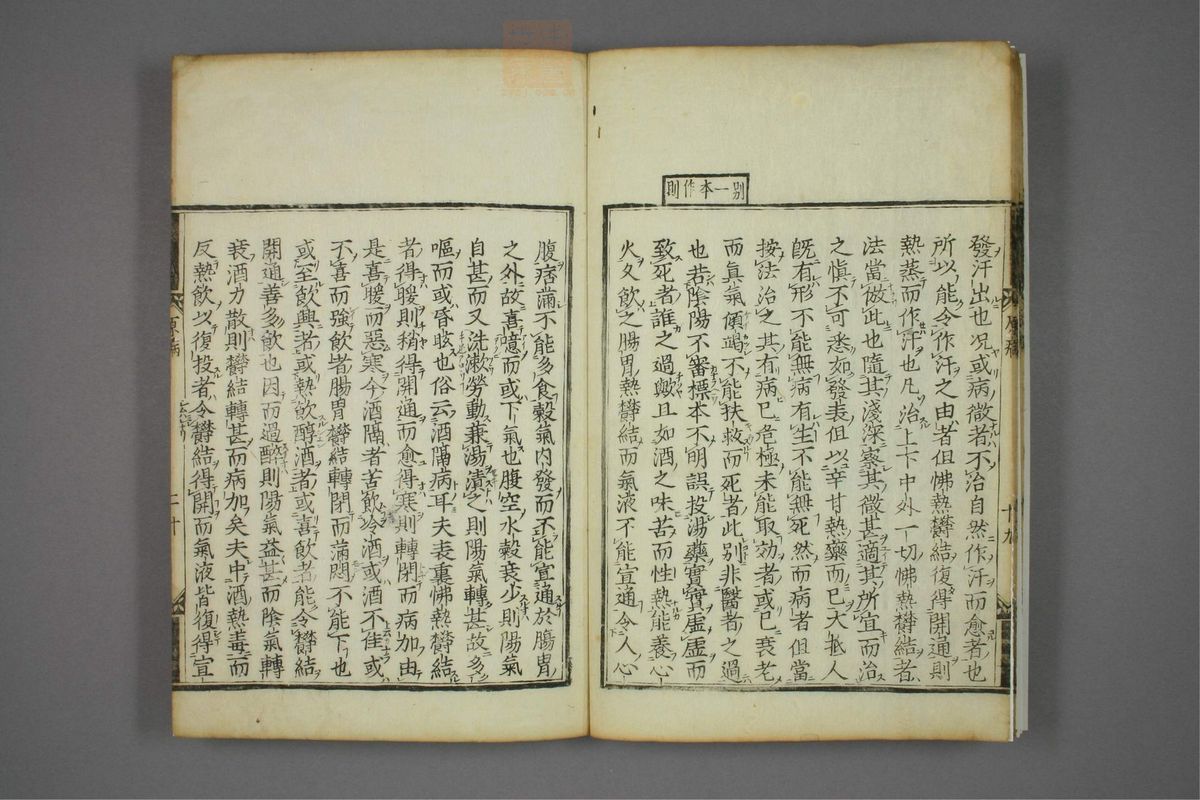 別一本作則
發汗出也况或病微者不治自然作汗而愈者也
所以能令作汗之由者但怫熱欝結復得開通則
熱蒸而作汗也凡治上下中外一切怫熱欝結者
法當倣此也隨其淺深察其微甚適其所宜而治
之慎不可悉如發表但以辛甘熱藥而已大抵人
既有形不能無病有生不能無死然而病者但當
按法治之其有病已危極未能取効者或已衰老
而真氣傾竭不能扶救而死者此別非醫者之過
也若陰陽不審標本不明誤投湯藥實實虛虛而
致死者誰之過歟且如酒之味苦而性熱能養心
火久飲之腸胃熱欝結而氣液不能宣通令人心
腹痞滿不能多食穀氣內發而不能宣通於腸胃
之外故喜噫而或下氣也腹空水穀衰少則陽氣
自甚而又洗漱勞動兼湯漬之則陽氣轉甚故多
嘔而或昏眩也俗云酒隔病耳夫表裏怫熱欝結
者得暖則稍得開通而愈得寒則轉閉而病加由
是喜暖而惡寒今酒隔者苦飲冷酒或酒不佳或
不喜而強飲者腸胃欝結轉閉而滿悶不能下也
或至飲興者或熱飲醇酒者或喜飲者能令欝結
開通善多飲也因而過醉則陽氣益甚而陰氣轉
衰酒力散則欝結轉甚而病加矣夫中酒熱毒而
反熱飲以復投者令欝結得開而氣液皆復得宣
原病
十九
原病
二十